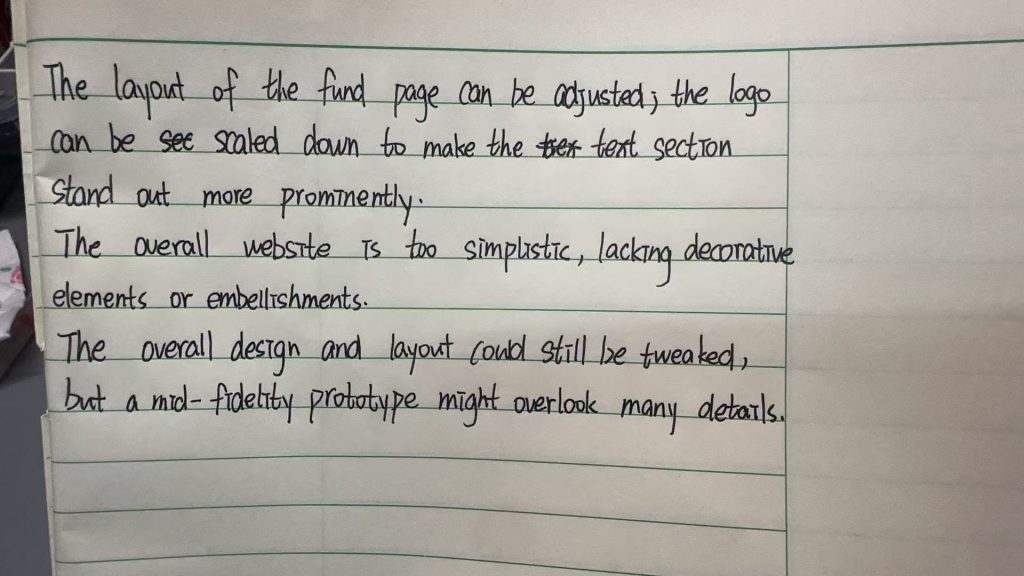 The layout of the fund page can be adjusted; the logo
can be see scaled down to make the tex text section
stand out more prominently.
The overall website is too simplistic, lacking decorative
elements or embellishments.
The overall design and layout could still be tweaked,
but a mid-fidelity prototype might overlook many details.